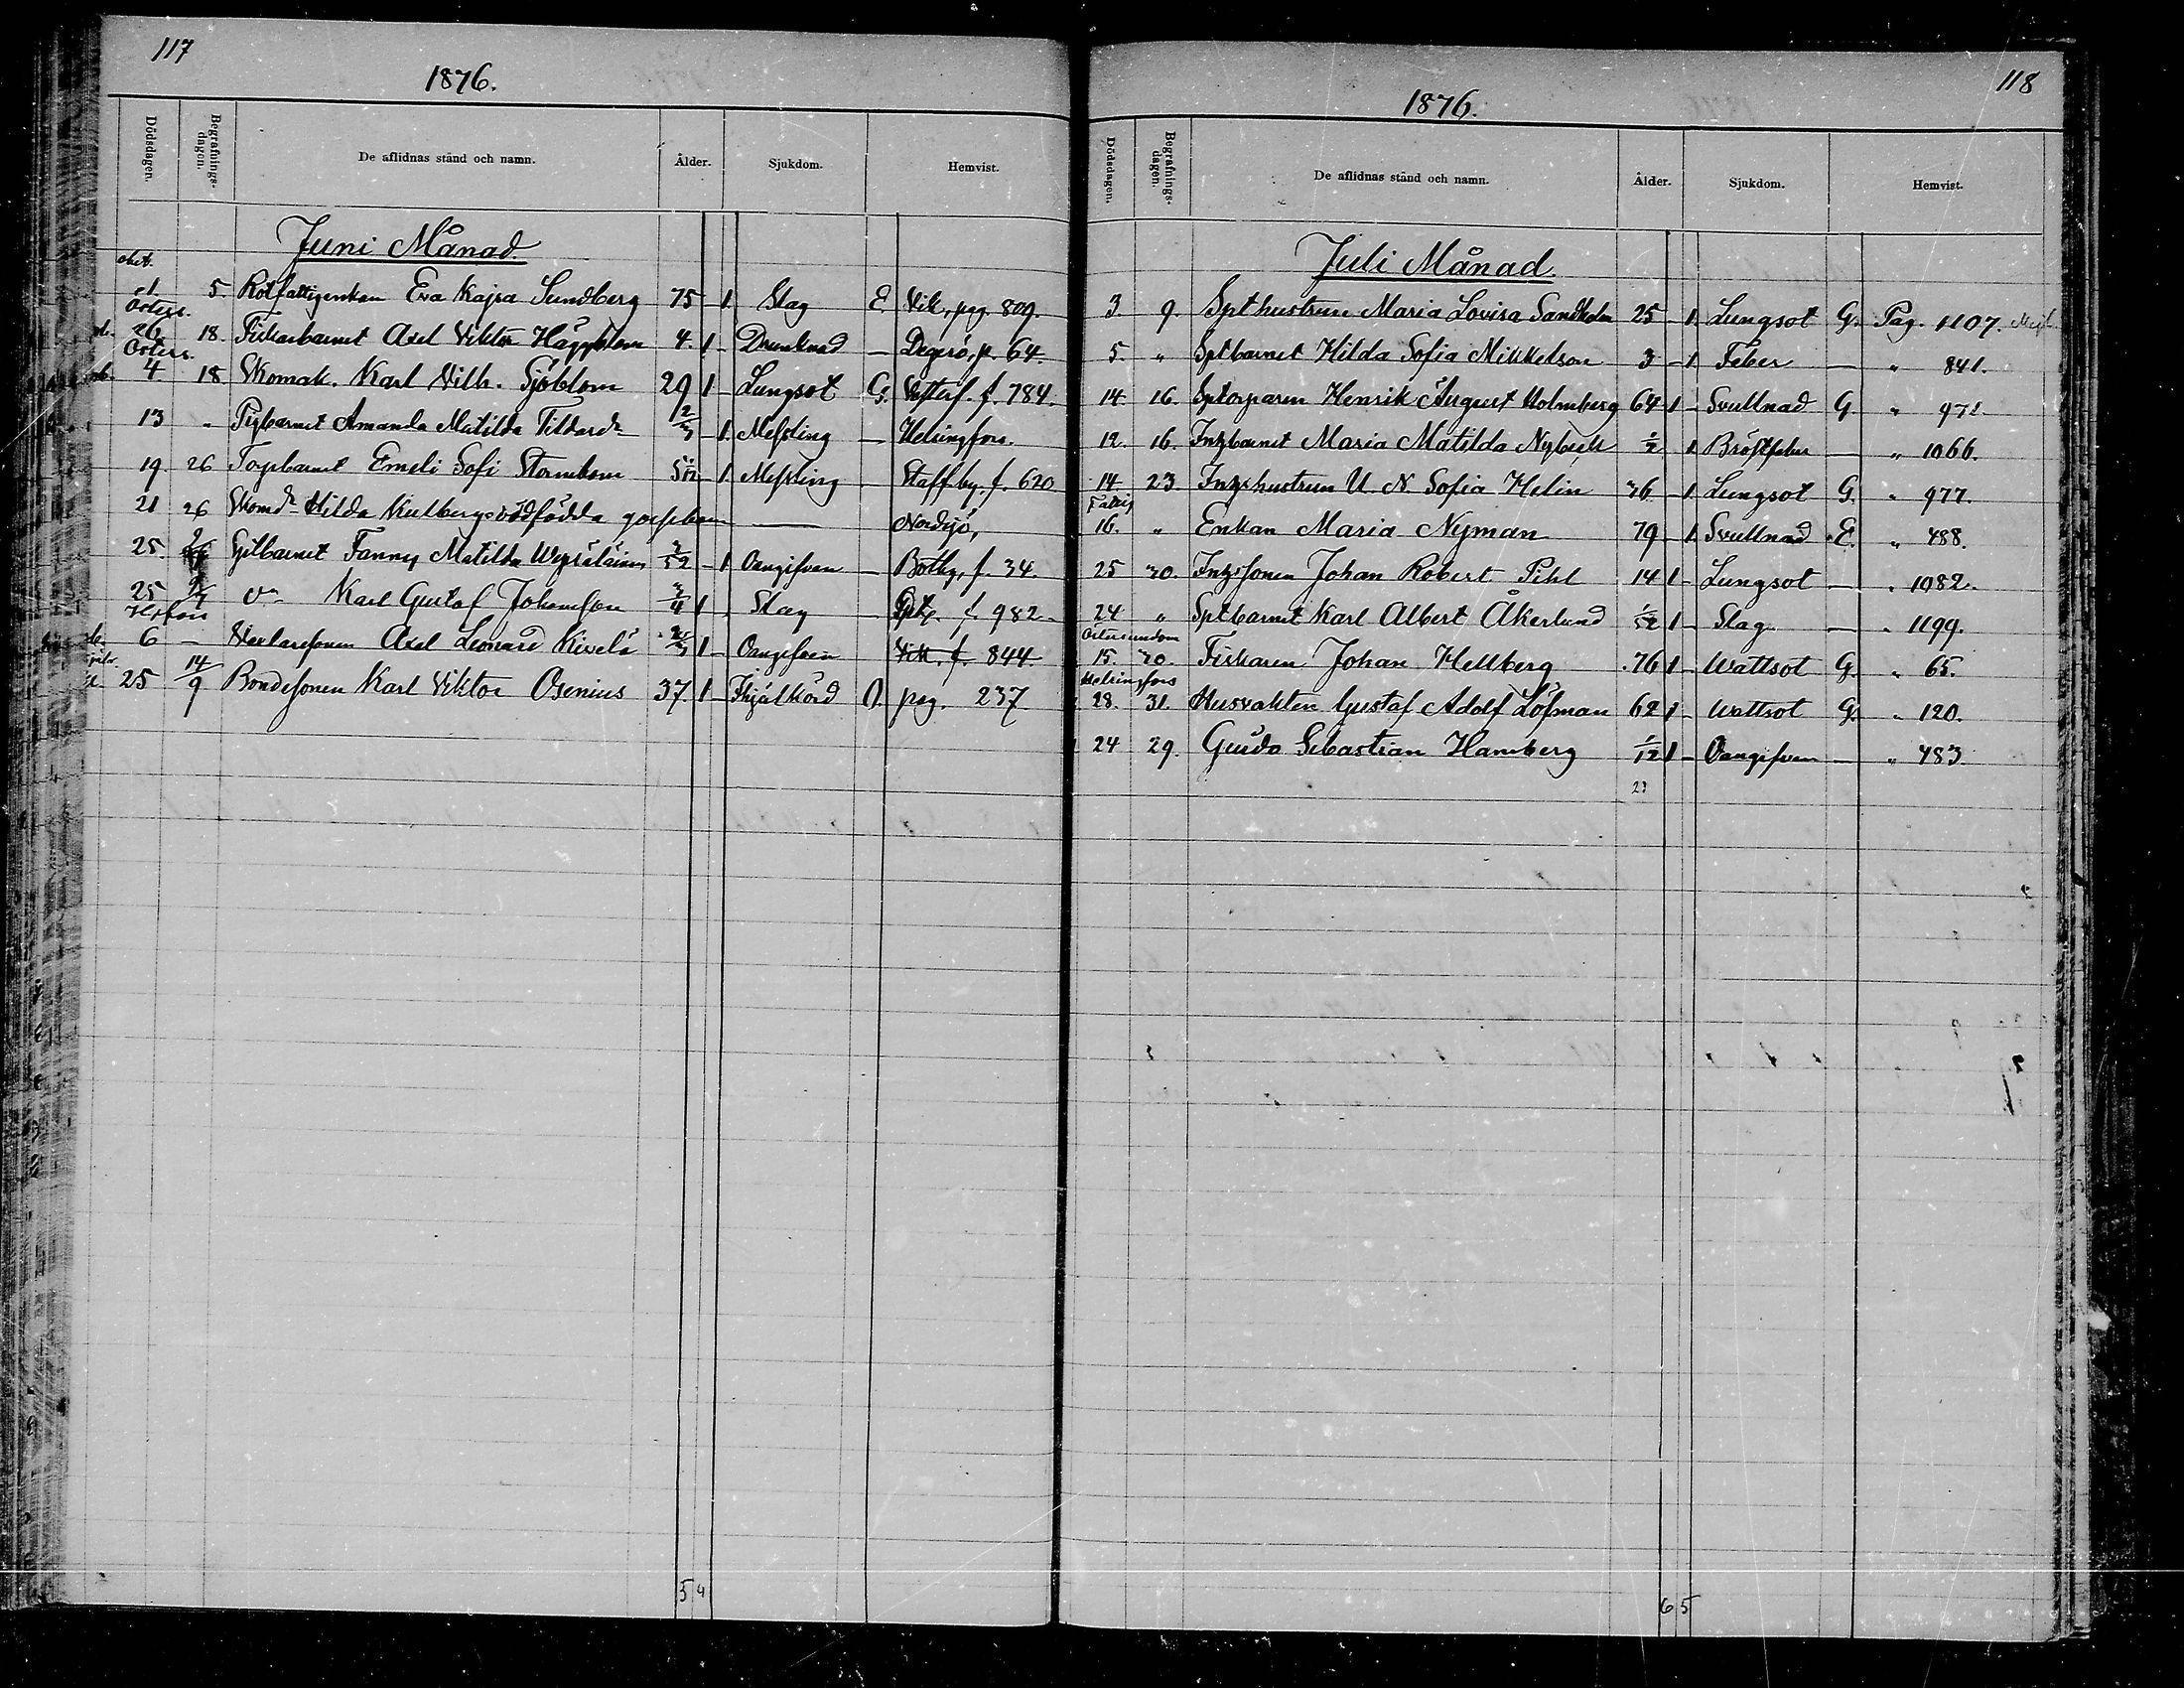 117
1876.
Dödsdagen. Begrafnings-dagen. De aflidnas stånd och namn. Ålder. Sjukdom. Hemvist.
Juni Månad
1 5 Rotfattigenkan Eva Kajsa Sundberg 75 - 1. Slag E. Vik, pag. 809.
Östers.
26 18. Fiskarbarnet Axel Viktor Häggblom 4. 1 - Drunknad - Degerö, p. 64.
Östers.
4. 18 Skomak. Karl Vilh. Sjöblom 29 1 - Lungsot G. f. 784.
13 " Pigbarnet Amanda Matilda 2/3 - 1. Messling - Helsingfors.
19 26 Torpbarnet Emeli Sofi Stormbom - 1. Messling - Staffby. f. 620.
21 26 Hilda Kullbergs dödfödda gossbarn - Nordsjö,
25. Fanny Matilda - 1. Oangifven - Botby, f. 34.
25 2/7 Karl Gustaf Johansson 3/4 1 Slag - f. 982.
H:fors
6 - Axel Leonard Kivelä 1 - Oangifven Vik. f. 844.
25 14/9 Bondesonen Karl Viktor Osenius 37. 1 - O. pag. 237
54
118
1876.
Dödsdagen. Begrafnings-dagen. De aflidnas stånd och namn. Ålder. Sjukdom. Hemvist.
Juli Månad
3. 9. Spt hustrun Maria Lovisa Sandholm 25 - 1. Lungsot G. Pag. 1107.
5. " Sptbarnet Hilda Sofia Mikkelson 3 - 1. Feber - " 841.
14. 16. Sptorparen Henrik August Holmberg 64 1 - Svullnad G. " 972.
12. 16. Inhysbarnet Maria Matilda 1/2 1. Bröstfeber - " 1066.
14 23. Inhyshustrun U. N. Sofia Helin 76 - 1. Lungsot G. " 977.
Fattig
16. " Enkan Maria Nyman 79 - 1. Svullnad E. " 488.
25 30. Inhyssonen Johan Robert Pihl 14 1 - Lungsot - " 1082.
24 " Sptbarnet Karl Albert Åkerlund 1/52 1 - Slag. - " 1199.
Östersundom
15. 30. Fiskaren Johan Hellberg 76 1 - Wattsot G. " 65.
Helsingfors
28. 31. Husvakten Gustaf Adolf Löfman 62 1 - Wattsot G. " 120.
24 29. Guido Sebastian Hamberg 1/12 1 - Oangifven - " 483.
23
65